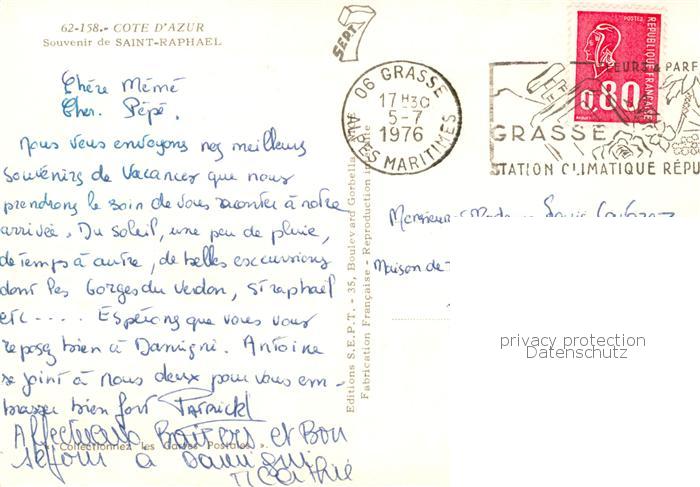 62-158.- COTE D'AZUR
Souvenir de SAINT-RAPHAEL
SEPT
Chère Mémé
Cher Pépé.
Nous vous envoyons nos meilleurs
souvenirs de Vacances que nous
prendrons le soin de vous raconter à notre
arrivée. Du soleil, une peu de pluie,
de temps à autre, de belles excursions
dont les Gorges du Verdon, St raphaël
etc.... Espérons que vous vous
reposez bien à Damigni. Antoine
se joint à nous deux pour vous em-
brasser bien fort Patrick
Affectueux Baisers et Bon
« Collectionnez les Cartes Postales ».
séjour à Damigni
Editions S.E.P.T. - 35, Boulevard Gorbella
Fabrication Française - Reproduction
06 GRASSE
17H30
5-7
1976
ALPES MARITIMES
POSTES
REPUBLIQUE FRANÇAISE
0,80
EURS & PARF
GRASSE
STATION CLIMATIQUE RÉPU
Monsieur
Maison de
privacy protection
Datenschutz